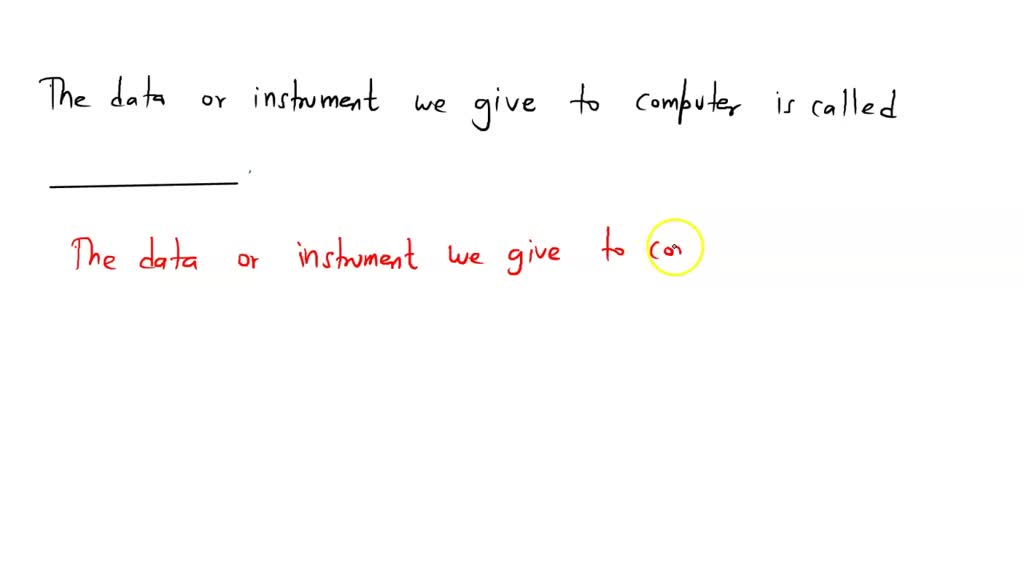 The data or instrument we give to computer is called
The data or instrument we give to con